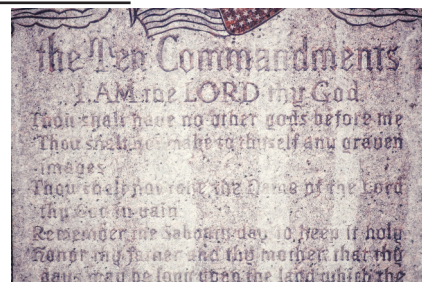 the Ten Commandments
I AM the LORD thy God
Thou shalt have no other gods before me
Thou shalt not make to thyself any graven
images
Thou shalt not take the Name of the Lord
thy God in vain
Remember the Sabbath day to keep it holy
Honor thy father and thy mother that thy
days may be long upon the land which the